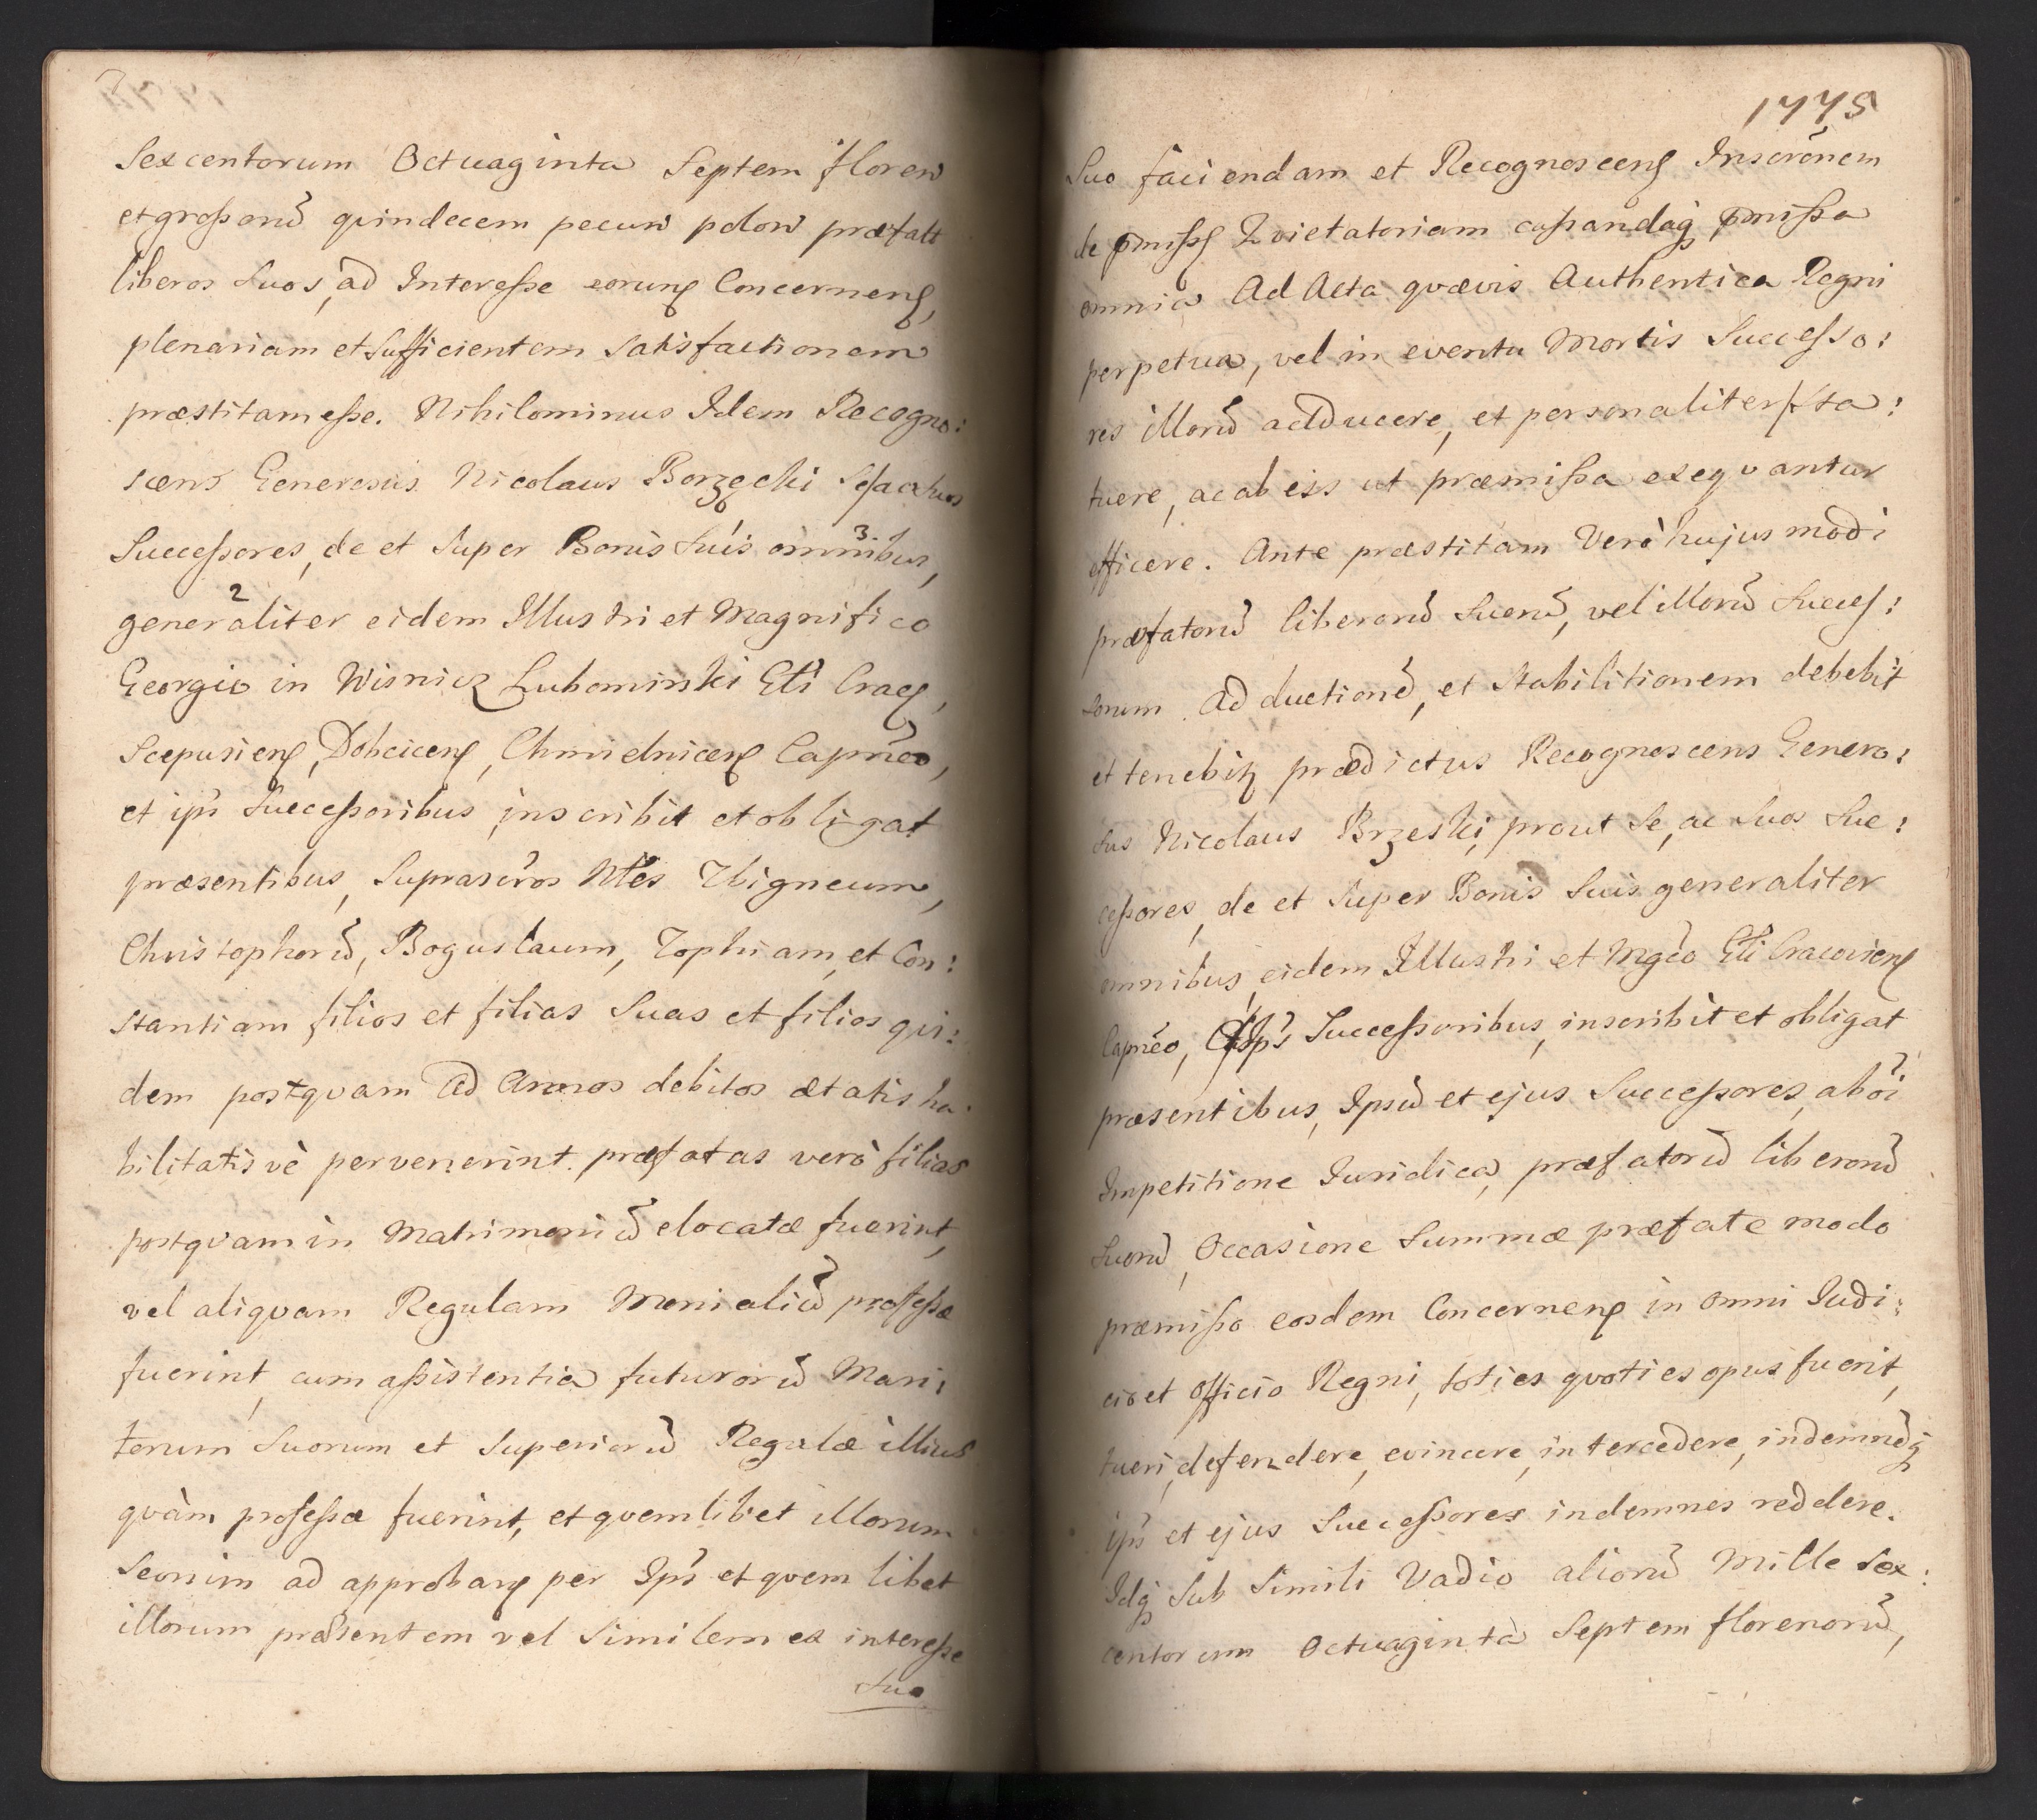 Sexcentorum Octuaginta Septem floren
et grossorũ quindecem pecun polon præfatt
liberos Suos, ad Interesse eorung Concerneng,
plenariam et Sufficientem Satisfactionem
præstitam esse. Nihilominus Idem Recogno:
scens Generosus Nicolaus Borzęcki Se, ac Suos
Successores, de et Super Bonis Suis omnibus, 3
generaliter 2 eidem Illustri et Magnifico
Georgio in Wisnicz Lubomirski Głi Cracę,
Scepusienę, Dobcicenę, Chmielnicenę Capneo,
et ipś Successoribus inscribit et obligat
præsentibus, Suprascros Nłes Zbigneum,
Christophorũ, Boguslaum, Zophiam, et Con:
stantiam filios et filias Suas et filios qvi:
dem postqvam ad Annos debitos ætatis ha:
bilitatis vè pervenerint. præfatas verò filias
postqvam in Matrimoniũ elocatæ fuerint,
vel aliqvam Regulam Monialiũ professæ
fuerint, cum assistentia futurorũ Mari:
torum Suorum et Superiorũ Regulæ illius
qvàm professæ fuerint, et qvemlibet illorum
Seorsim ad approbanę per Ipś et qvem libet
illorum præsentem vel Similem ex interesse
Suo
1775
Suo faciendam et Recognoscenę Inscrõnem
de pmissę Qvietatoriam cassandaq̃, pmissa
omnia Ad Acta qvævis Authentica Regni
perpetua, vel in eventu Mortis Successo:
res illorũ adducere, et personaliter Sta:
tuere, ac ab eis ut præmissa exeqvantur
efficere. Ante præstitam Verò hujus modi
præfatorũ liberorũ Suorũ, vel illorũ Succes:
sorum Adductionẽ, et Stabilitionem debebit
et tenebitʒ prædictus Recognoscens Genero:
sus Nicolaus Brzeski, prout Se, ac Suos Suc:
cessores, de et Super Bonis Suis generaliter
omnibus, eidem Illustri et Mgco Głi Cracovienę
Capneo, Ipś Successoribus, inscribit et obligat
præsentibus, Ipsũ et ejus Successores, ab õi
Impetitione Iuridica, præfatorũ liberorũ
Suorũ, Occasione Summæ præfatæ modo
præmisso eosdem Concernenę in omni Iudi:
cio et Officio Regni, toties qvoties opus fuerit,
tueri, defendere, evincere, intercedere, indemnẽq̃
ipś et ejus Successores indemnes reddere.
Idq̃ Sub Simili Vadio aliorũ Mille Sex:
centorum Octuaginta Septem florenorũ,